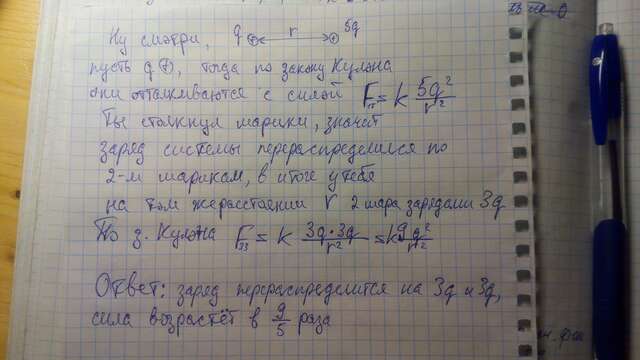 Ну смотри, q ⊕ ⟷ r ⊕ 5q
пусть q ⊕, тогда по закону Кулона
они отталкиваются с силой F = k 5q²/r²
Ты столкнул шарики, значит
заряд системы перераспределился по
2-м шарикам, в итоге у тебя
на том же расстоянии r 2 шара зарядами 3q
По з. Кулона F = k 3q·3q/r² = k 9q²/r²
Ответ: заряд перераспределится на 3q и 3q,
сила возрастёт в 9/5 раза